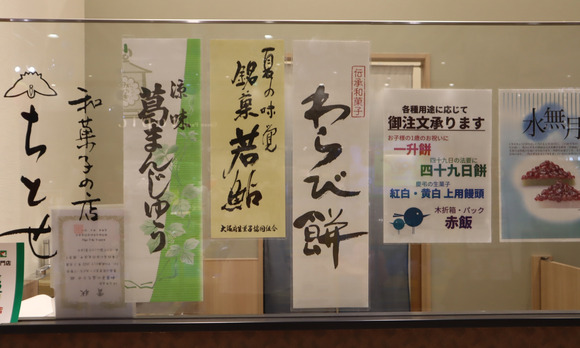 和菓子の店
ちとせ
涼味
葛まんじゅう
夏の味覚
銘菓 若鮎
大阪府生菓子協同組合
伝承和菓子
わらび餅
各種用途に応じて
御注文承ります
お子様の1歳のお祝いに
一升餅
四十九日の法要に
四十九日餅
慶弔の生菓子
紅白・黄白 上用饅頭
木折箱・パック
赤飯
水無月